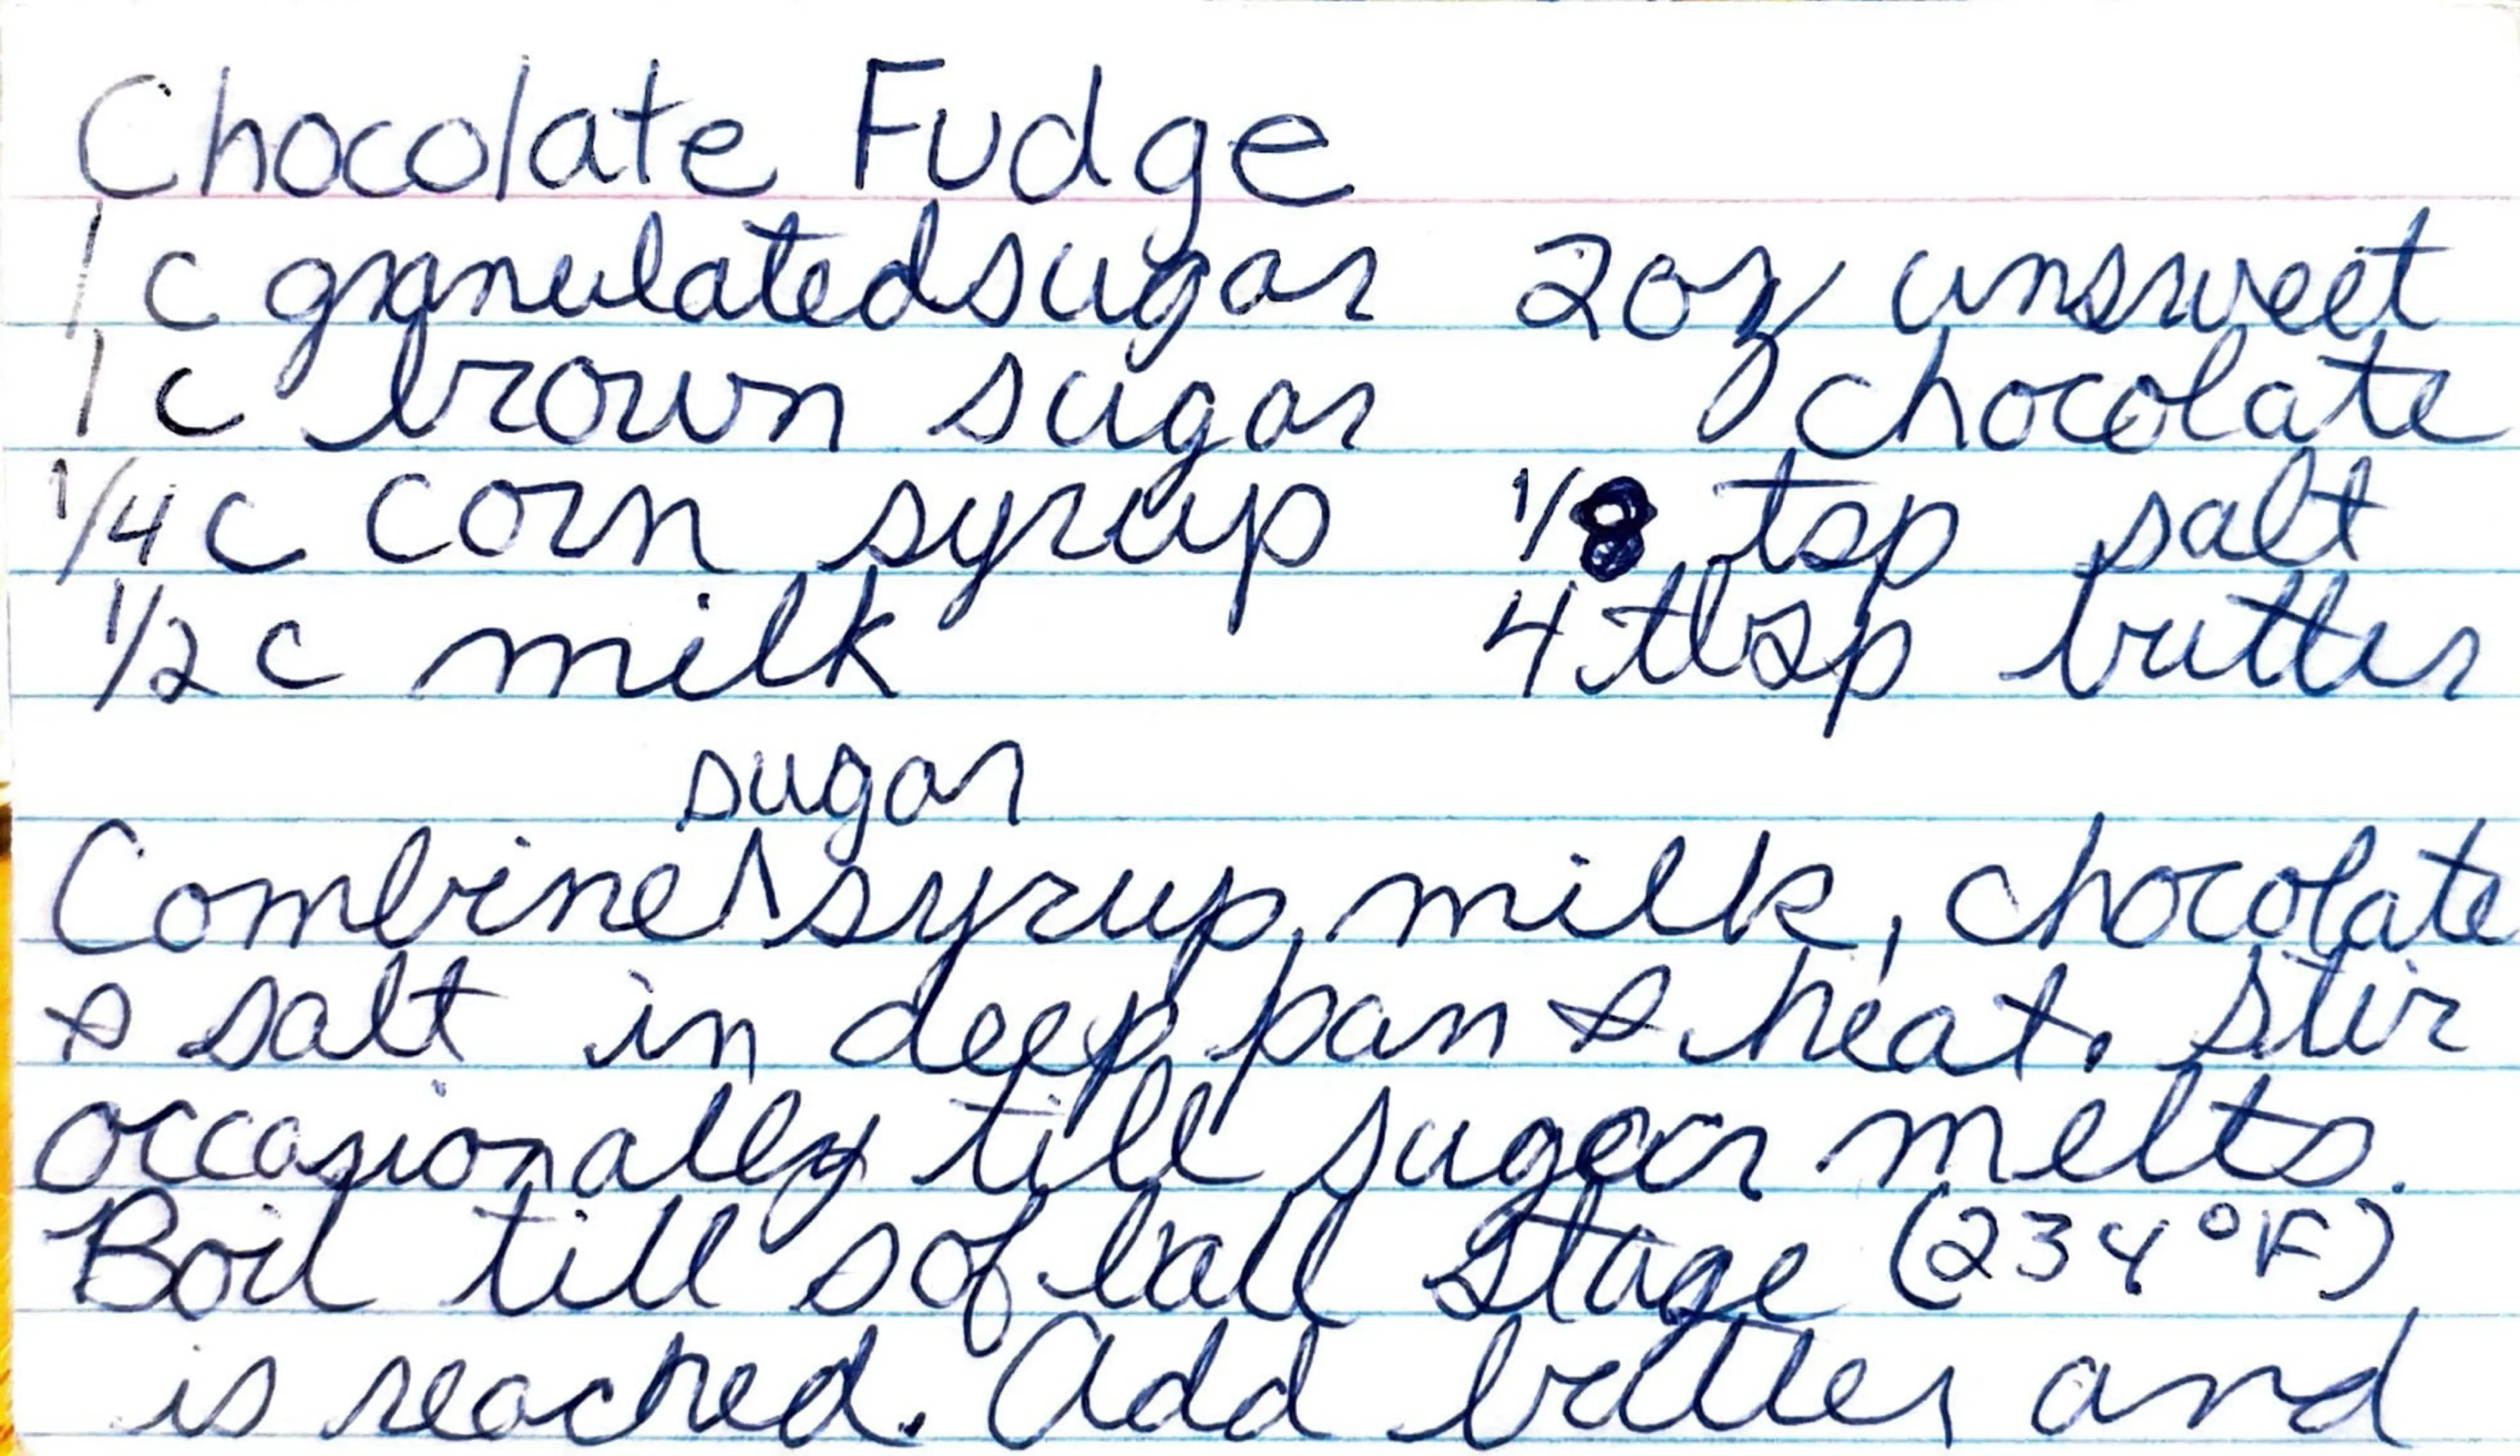 Chocolate Fudge
1 c granulated sugar 2 oz unsweet
1 c brown sugar chocolate
1/4 c corn syrup 1/8 tsp salt
1/2 c milk 4 tbsp butter
sugar
Combine ^ syrup, milk, chocolate
& salt in deep pan & heat. Stir
occasionally till sugar melts.
Boil till sof ball stage (234°F)
is reached. Add butter and